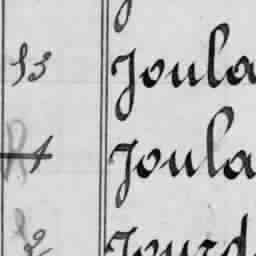 53 Joula
1 Joula
2 Jourd